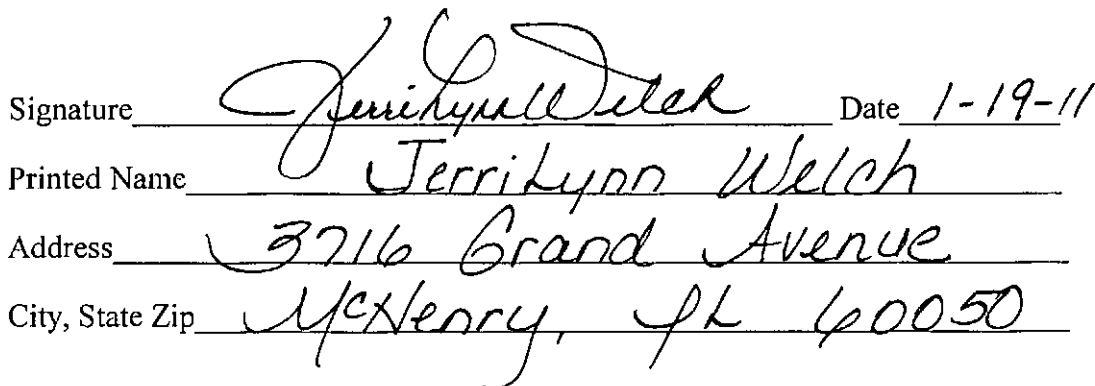 Signature JerriLynn Welch Date 1-19-11
Printed Name JerriLynn Welch
Address 3716 Grand Avenue
City, State Zip McHenry, IL 60050